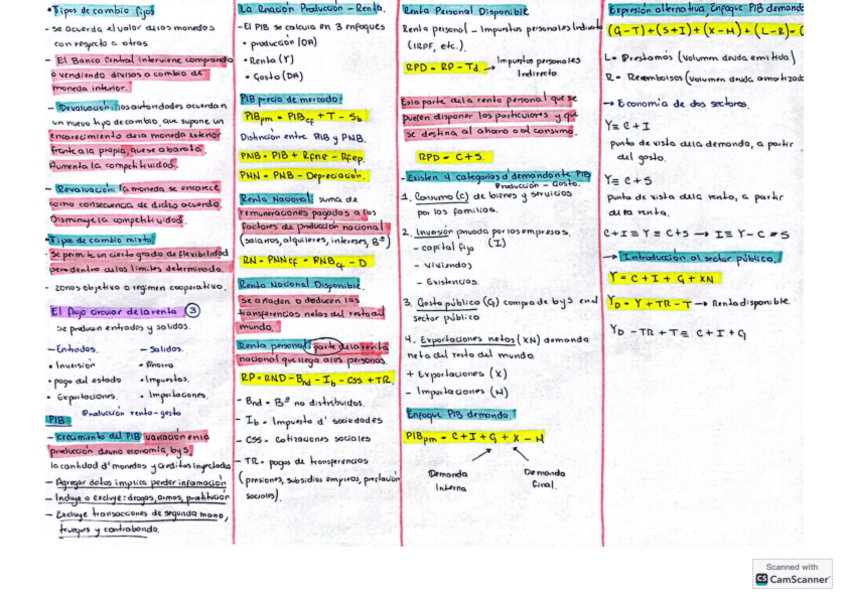 • Tipos de cambio fijos
- se acuerda el valor de las monedas
con respecto a otras
- El Banco Central interviene comprando
o vendiendo divisas a cambio de
moneda interior.
- Devaluación: las autoridades acuerdan
un nuevo tipo de cambio, que supone un
encarecimiento de la moneda exterior
frente a la propia, que se abarata.
Aumenta la competitividad.
- Revaluación: la moneda se encarece
como consecuencia de dicho acuerdo.
Disminuye la competitividad.
• Tipos de cambio mixto:
- Se permite un cierto grado de flexibilidad
pero dentro de los límites determinado.
- zonas objetivo o regimen cooperativo.
El flujo circular de la renta 3
se producen entradas y salidas.
- Entradas.
• Inversión
• pago del estado
• Exportaciones.
- Salidas.
• Ahorro
• Impuestos.
• Importaciones.
Producción renta-gasto
PIB
- Crecimiento del PIB: variación en la
producción de una economía, by s.
la cantidad d' monedas y creditos inyectados
- Agregar datos implica perder información
- Incluye o excluye: drogas, armas, prostitución
- Excluye transacciones de segunda mano,
trueques y contrabando.
La Relación Producción - Renta.
- El PIB se calcula en 3 enfoques
• producción (OA)
• Renta (Y)
• Gasto (DA)
PIB precio de mercado:
PIBpm = PIBcf + T - Sb
Distinción entre PIB y PNB.
PNB = PIB + Rfne - Rfep.
PNN = PNB - Depreciación.
Renta Nacional: suma de
remuneraciones pagadas a los
factores de producción nacional
(salarios, alquileres, intereses, Bº)
RN = PNNcf = PNBcf - D
Renta Nacional Disponible.
Se añaden o deducen las
transferencias netas del resto del
mundo.
Renta personal: parte de la renta
nacional que llega a las personas.
RP = RND - Bnd - Ib - CSS + TR.
- Bnd = Bº no distribuidos.
- Ib = Impuesto d' sociedades
- CSS = cotizaciones sociales
- TR = pagos de transferencias
(pensiones, subsidios empresa, prestación
sociales).
Renta Personal Disponible
Renta personal - Impuestos personales
(IRPF, etc.).
RPD = RP - Td → Impuestos personales
Indirecto.
Esla parte de la renta personal que se
pueden disponer los particulares y que
se destina al ahorro o al consumo.
RPD = C + S.
- Existen 4 categorías d' demandante PIB
Producción - Gasto.
1. Consumo (C) de bienes y servicios
por las familias.
2. Inversión privada por las empresas.
(I)
- capital fijo
- Viviendas
- Existencias.
3. Gasto público (G) compra de by s en el
sector público
4. Exportaciones netas (XN) demanda
neta del resto del mundo.
+ Exportaciones (X)
- Importaciones (M)
Enfoque PIB demanda.
PIBpm = C + I + G + X - M
Demanda
Interna
Demanda
final.
Expresión alternativa, Enfoque PIB demanda
(G-T) + (S+I) + (X-M) + (L-R) = (
L = Prestamos (Volumen deuda emitida)
R = Reembolsos (volumen deuda amortizad
→ Economía de dos sectores.
Y ≡ C + I
punto de vista de la demanda, a partir
del gasto.
Y ≡ C + S
punto de vista de la renta, a partir
de la renta.
C + I ≡ Y ≡ C + S → I ≡ Y - C ≡ S
→ Introducción al sector público.
Y = C + I + G + XN
YD = Y + TR - T → Renta disponible
YD - TR + T ≡ C + I + G
Scanned with
CS CamScanner